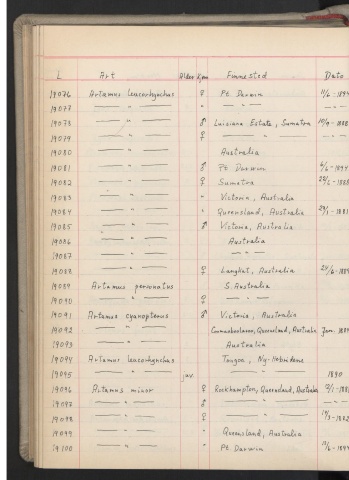 L Art Alder Kjøn Finnested Dato
19076 Artamus leucorhynchus ♀ Pt. Darwin 11/6 - 1894
19077 — " — " — " —
19078 — " — ♂ Luisiana Estate, Sumatra
19079 — " — ♀ — " —
19080 — " — Australia
19081 — " — ♂ Pt Darwin 6/6 - 1894
19082 — " — ♀ Sumatra
19083 — " — " Victoria, Australia
19084 — " — " Queensland, Australia
19085 — " — ♂ Victoria, Australia
19086 — " — Australia
19087 — " — — " —
19088 — " — ♀ Langkat, Australia
19089 Artamus personatus S. Australia
19090 — " — ♀ — " —
19091 Artamus cyanopterus ♂ Victoria, Australia
19092 — " — Queensland, Australia Jan.
19093 — " — Australia
19094 Artamus leucorhynchus Tongoa, Ny-Hebriderne
19095 — " — juv. — " — 1890
19096 Artamus minor ♀ Rockhampton, Queensland, Australia
19097 — " — ♂ — " — " —
19098 — " — ♀ — " — " —
19099 — " — " Queensland, Australia
19100 — " — " Pt Darwin